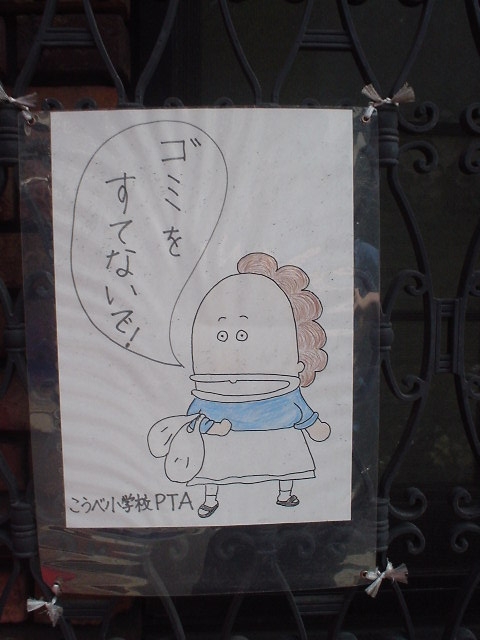 ゴミを
すてないで!
こうべ小学校PTA